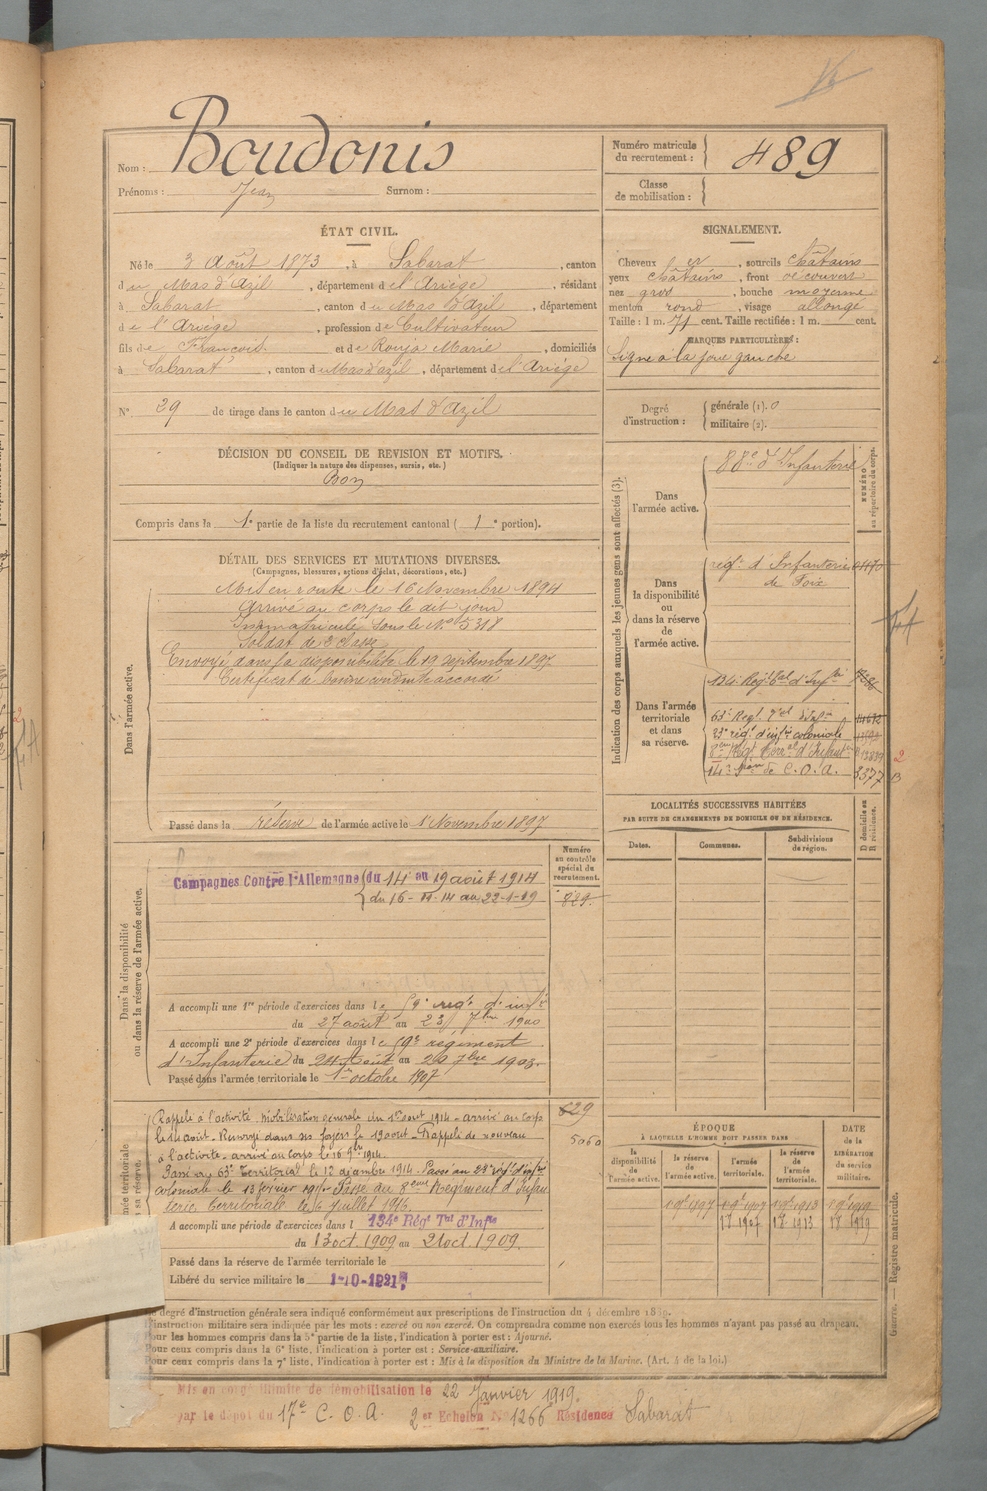 Nom : Boudonis
Prénoms : Jean Surnom :
Numéro matricule du recrutement : 489
Classe de mobilisation :
ÉTAT CIVIL.
Né le 3 Août 1873, à Sabarat, canton
du Mas d'Azil, département de l'Ariège, résidant
à Sabarat, canton du Mas d'Azil, département
de l'Ariège, profession de Cultivateur
fils de François et de Rouja Marie, domiciliés
à Sabarat, canton du Mas d'azil, département de l'Ariège
N° 29 de tirage dans le canton du Mas d'Azil
SIGNALEMENT.
Cheveux, sourcils châtains
yeux châtains, front découvert
nez gros, bouche moyenne
menton rond, visage allongé
Taille : 1 m. 71 cent. Taille rectifiée : 1 m. cent.
MARQUES PARTICULIÈRES :
Signe à la joue gauche
Degré d'instruction : générale (1). 0
militaire (2).
DÉCISION DU CONSEIL DE REVISION ET MOTIFS.
(Indiquer la nature des dispenses, sursis, etc.)
Bon
Compris dans la 1e partie de la liste du recrutement cantonal ( 1e portion).
DÉTAIL DES SERVICES ET MUTATIONS DIVERSES.
(Campagnes, blessures, actions d'éclat, décorations, etc.)
Dans l'armée active.
Mis en route le 16 Novembre 1894
Arrivé au corps le dit jour
Immatriculé sous le No 5318
Soldat de 2e classe
Envoyé dans la disponibilité le 19 septembre 1897
Certificat de bonne conduite accordé
Passé dans la réserve de l'armée active le 1 Novembre 1897
Indication des corps auxquels les jeunes gens sont affectés (3).
NUMÉRO au répertoire du corps.
Dans l'armée active.
88e d'Infanterie
Dans la disponibilité ou dans la réserve de l'armée active.
régt d'Infanterie
de Foix
Dans l'armée territoriale et dans sa réserve.
134e Régt Tal d'Infrie
63e Régt Tal d'Infie
23e régt d'infie coloniale
8eme Régt Teral d'Infantie 13839
143 Son de C.O.A. 3377
2
LOCALITÉS SUCCESSIVES HABITÉES
PAR SUITE DE CHANGEMENTS DE DOMICILE OU DE RÉSIDENCE.
Dates. Communes. Subdivisions de région. D domicile ou R résidence.
Dans la disponibilité ou dans la réserve de l'armée active.
Numéro au contrôle spécial du recrutement.
829
Campagnes Contre l'Allemagne du 14 au 19 août 1914
du 16-11-14 au 22-1-19
A accompli une 1re période d'exercices dans le 59e régt d'infie
du 27 août au 23 7bre 1900
A accompli une 2e période d'exercices dans le 59e régiment
d'Infanterie du 24 Août au 20 7bre 1903.
Passé dans l'armée territoriale le 1er octobre 1907
Rappelé à l'activité. Mobilisation générale du 1er aout 1914 - arrivé au corps
le 14 août - Renvoyé dans ses foyers le 19 août - Rappelé de nouveau
à l'activité - arrivé au corps le 16 9bre 1914.
Passé au 63e Territorial le 12 décembre 1914. Passé au 23e régt d'infie
coloniale le 13 février 1915. Passé au 8eme Régiment d'Infan
terie Territoriale le 6 Juillet 1916.
829
5060
A accompli une période d'exercices dans l 134e Régt Tal d'Infie
du 13 oct. 1909 au 21 oct. 1909.
Passé dans la réserve de l'armée territoriale le
Libéré du service militaire le 1-10-1921
ÉPOQUE
À LAQUELLE L'HOMME DOIT PASSER DANS
la disponibilité de l'armée active. la réserve de l'armée active. l'armée territoriale. la réserve de l'armée territoriale.
DATE de la LIBÉRATION du service militaire.
1 9bre 1897 1 9bre 1907 1 9bre 1913 1 9bre 1919
1 8 1907 1 8 1913 1 8 1919
Guerre. — Registre matricule.
degré d'instruction générale sera indiqué conformément aux prescriptions de l'instruction du 4 décembre 1889.
instruction militaire sera indiquée par les mots : exercé ou non exercé. On comprendra comme non exercés tous les hommes n'ayant pas passé au drapeau.
Pour les hommes compris dans la 5e partie de la liste, l'indication à porter est : Ajourné.
Pour ceux compris dans la 6e liste, l'indication à porter est : Service-auxiliaire.
Pour ceux compris dans la 7e liste, l'indication à porter est : Mis à la disposition du Ministre de la Marine. (Art. 4 de la loi.)
Mis en congé illimité de démobilisation le 22 Janvier 1919.
par le dépôt du 17e C.O.A. 2er Echelon N° 1266 Résidence Sabarat